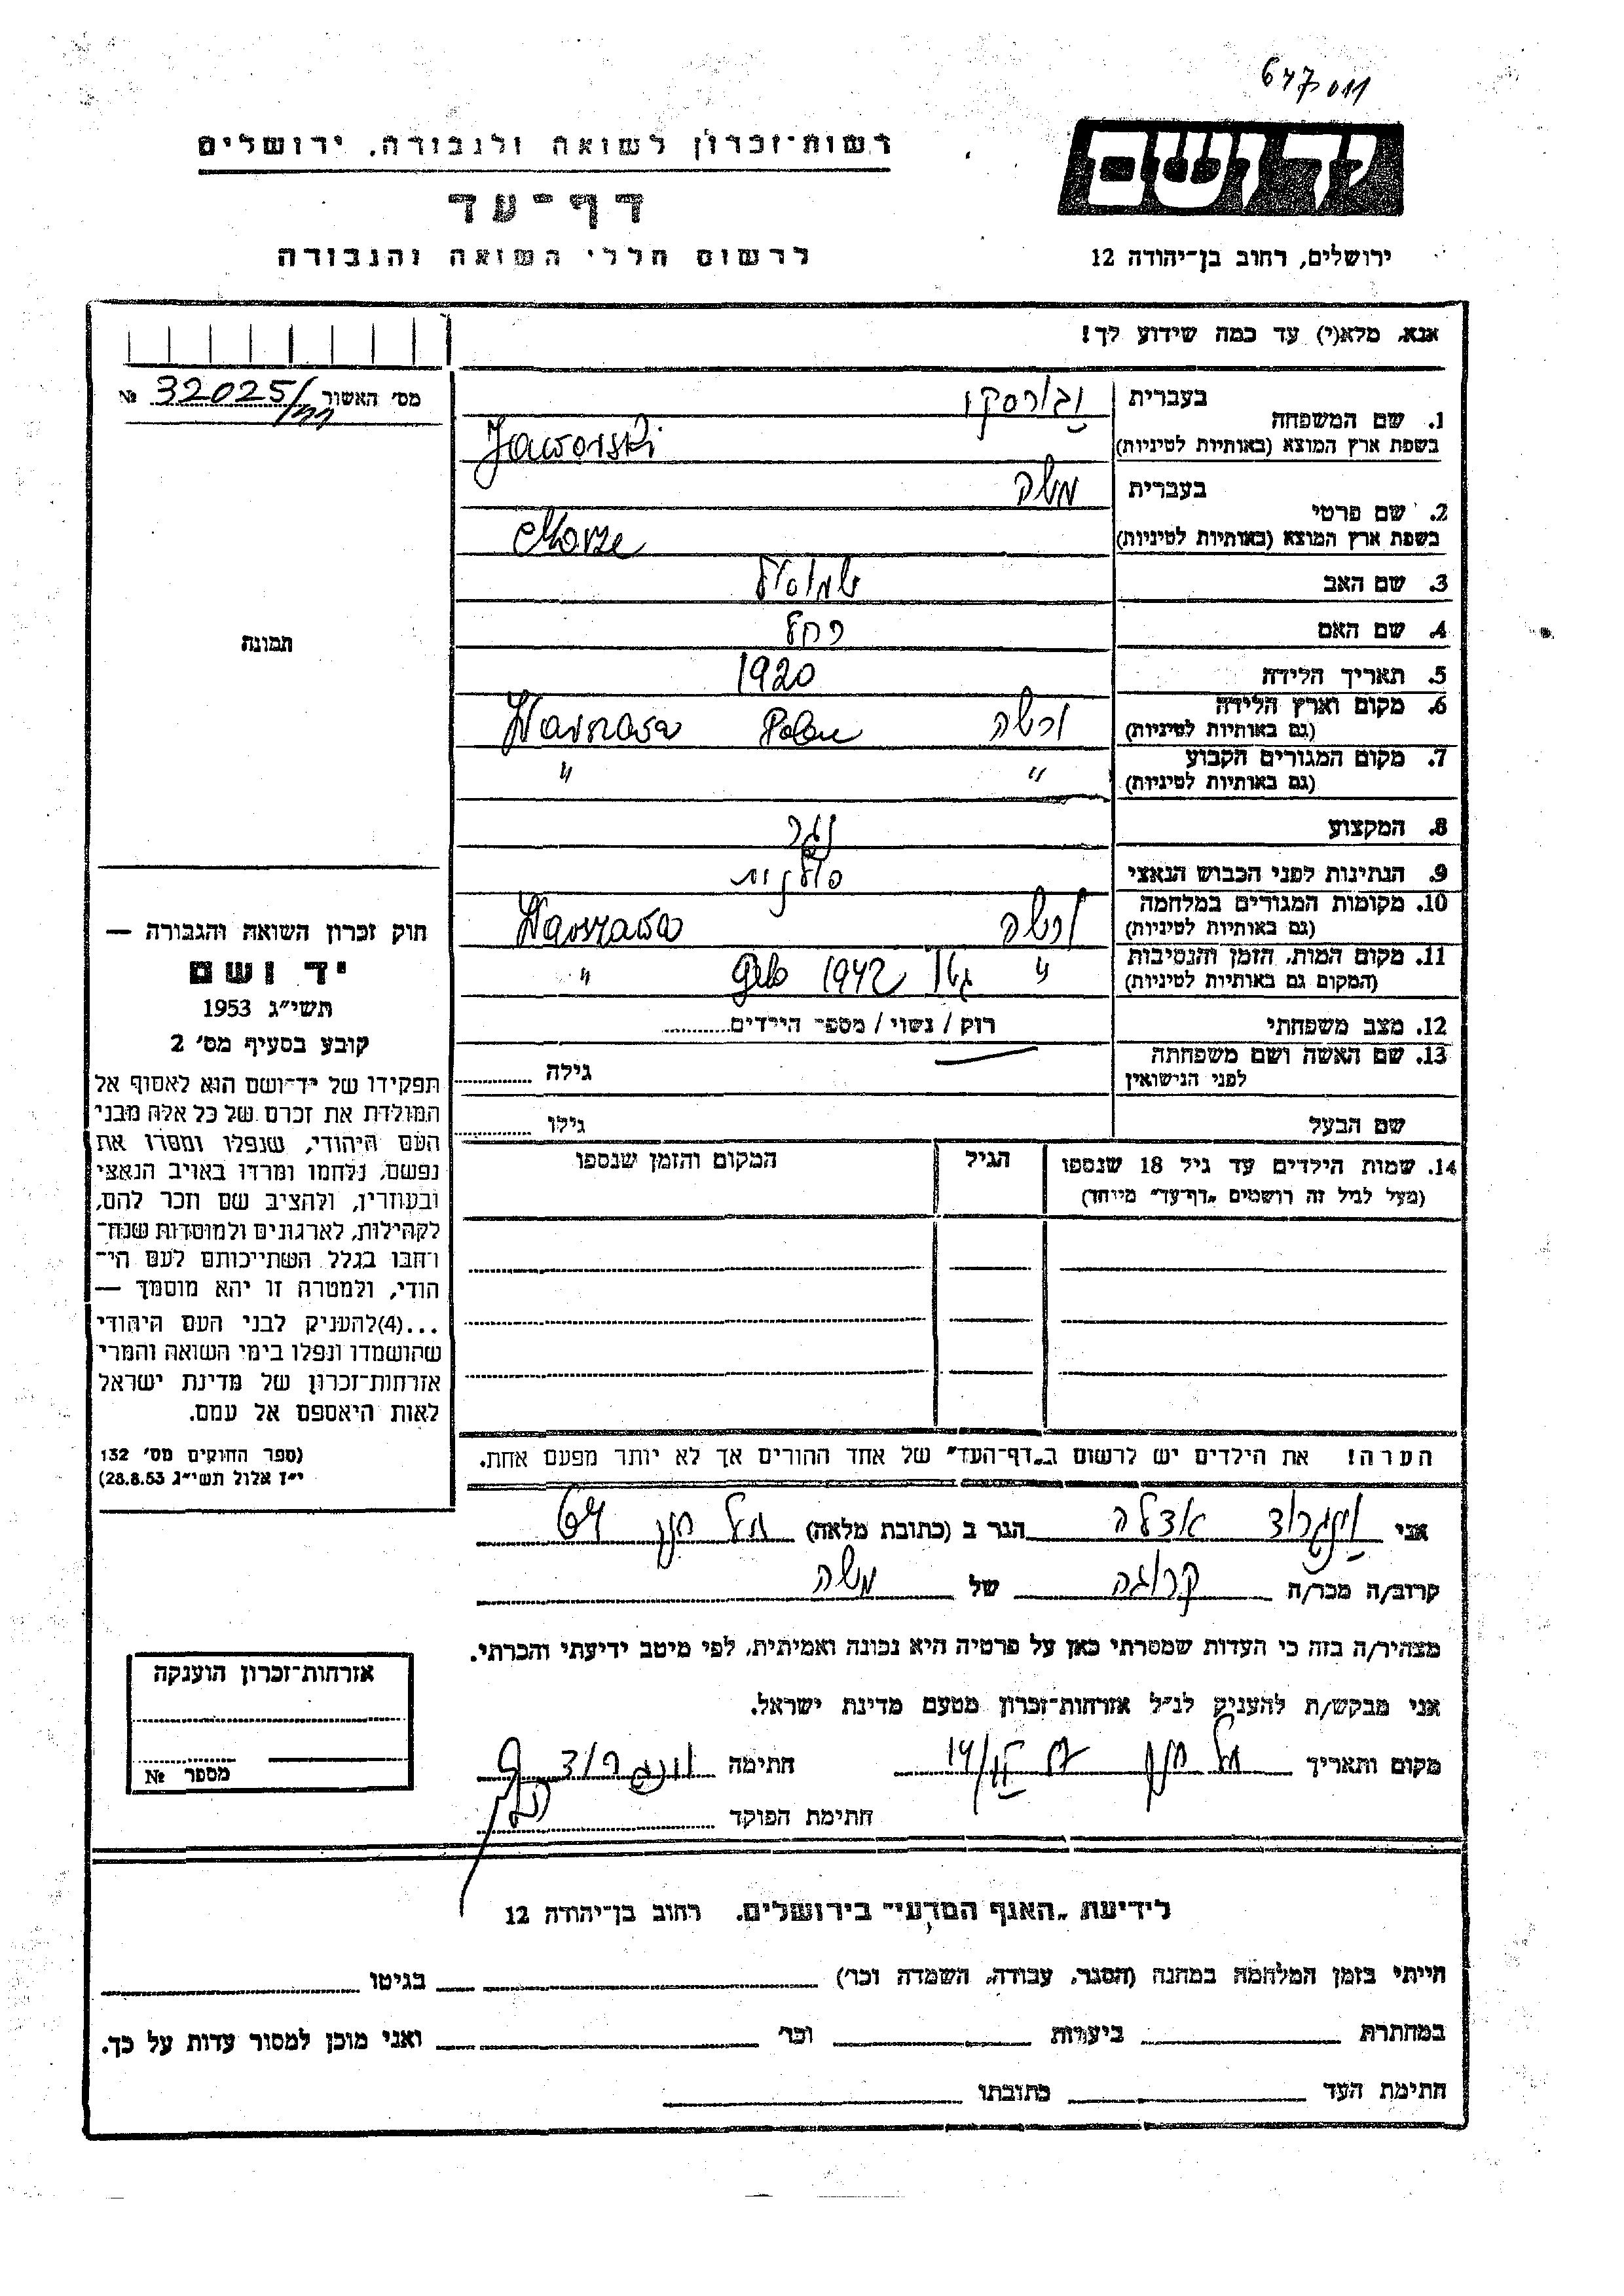 יד ושם
רשות-זכרון לשואה ולגבורה, ירושלים
דף-עד
לרשום חללי השואה והגבורה
ירושלים, רחוב בן-יהודה 12
אנא, מלא(י) עד כמה שידוע לך!
מס' האשור № 32025/
1. שם המשפחה
בעברית
בשפת ארץ המוצא (באותיות לטיניות) Jaworski
2. שם פרטי
בעברית משה
בשפת ארץ המוצא (באותיות לטיניות)
3. שם האב שמואל
4. שם האם רחל
5. תאריך הלידה 1920
6. מקום וארץ הלידה (גם באותיות לטיניות) ורשה Polen Warszawa
7. מקום המגורים הקבוע (גם באותיות לטיניות) " "
8. המקצוע נגר
9. הנתינות לפני הכבוש הנאצי פולנית
10. מקומות המגורים במלחמה (גם באותיות לטיניות) ורשה Warszawa
11. מקום המות, הזמן והנסיבות (המקום גם באותיות לטיניות) " גטו 1942 "
12. מצב משפחתי רוק / נשוי / מספר הילדים
13. שם האשה ושם משפחתה לפני הנישואין גילה
שם הבעל גילו
14. שמות הילדים עד גיל 18 שנספו הגיל המקום והזמן שנספו
(מעל לגיל זה רושמים "דף-עד" מיוחד)
הערה! את הילדים יש לרשום ב"דף-העד" של אחד ההורים אך לא יותר מפעם אחת.
תמונה
חוק זכרון השואה והגבורה —
יד ושם
תשי"ג 1953
קובע בסעיף מס' 2
תפקידו של יד-ושם הוא לאסוף אל
המולדת את זכרם של כל אלה מבני
העם היהודי, שנפלו ומסרו את
נפשם, נלחמו ומרדו באויב הנאצי
ובעוזריו, ולהציב שם וזכר להם,
לקהילות, לארגונים ולמוסדות שנח-
רבו בגלל השתייכותם לעם הי-
הודי, ולמטרה זו יהא מוסמך —
...(4)להעניק לבני העם היהודי
שהושמדו ונפלו בימי השואה והמרי
אזרחות-זכרון של מדינת ישראל
לאות היאספם אל עמם.
(ספר החוקים מס' 132
י"ז אלול תשי"ג 28.8.53)
אני וינגרוד אדלה הגר ב (כתובת מלאה) תל חנן
קרוב/ה מכר/ה קרובה של משה
מצהיר/ה בזה כי העדות שמסרתי כאן על פרטיה היא נכונה ואמיתית, לפי מיטב ידיעתי והכרתי.
אני מבקש/ת להעניק לנ"ל אזרחות-זכרון מטעם מדינת ישראל.
מקום ותאריך תל חנן חתימה
חתימת הפוקד
אזרחות-זכרון הוענקה
מספר №
לידיעת "האגף המדעי" בירושלים, רחוב בן-יהודה 12
הייתי בזמן המלחמה במחנה (הסגר, עבודה, השמדה וכו') בגיטו
במחתרת ביערות וכו' ואני מוכן למסור עדות על כך.
חתימת העד כתובתו